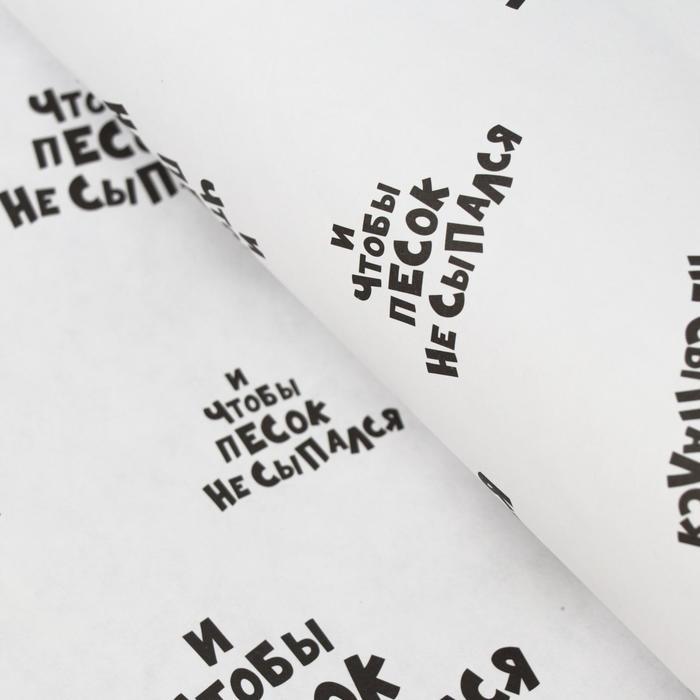 Чтo
ПЕС
Не СыП
И
Чтобы
ПЕСОК
Не СыПАЛСЯ
И
Чтобы
ПЕСОК
Не СыПАЛСЯ
И
Чтобы
ОК
ЛСЯ
Я